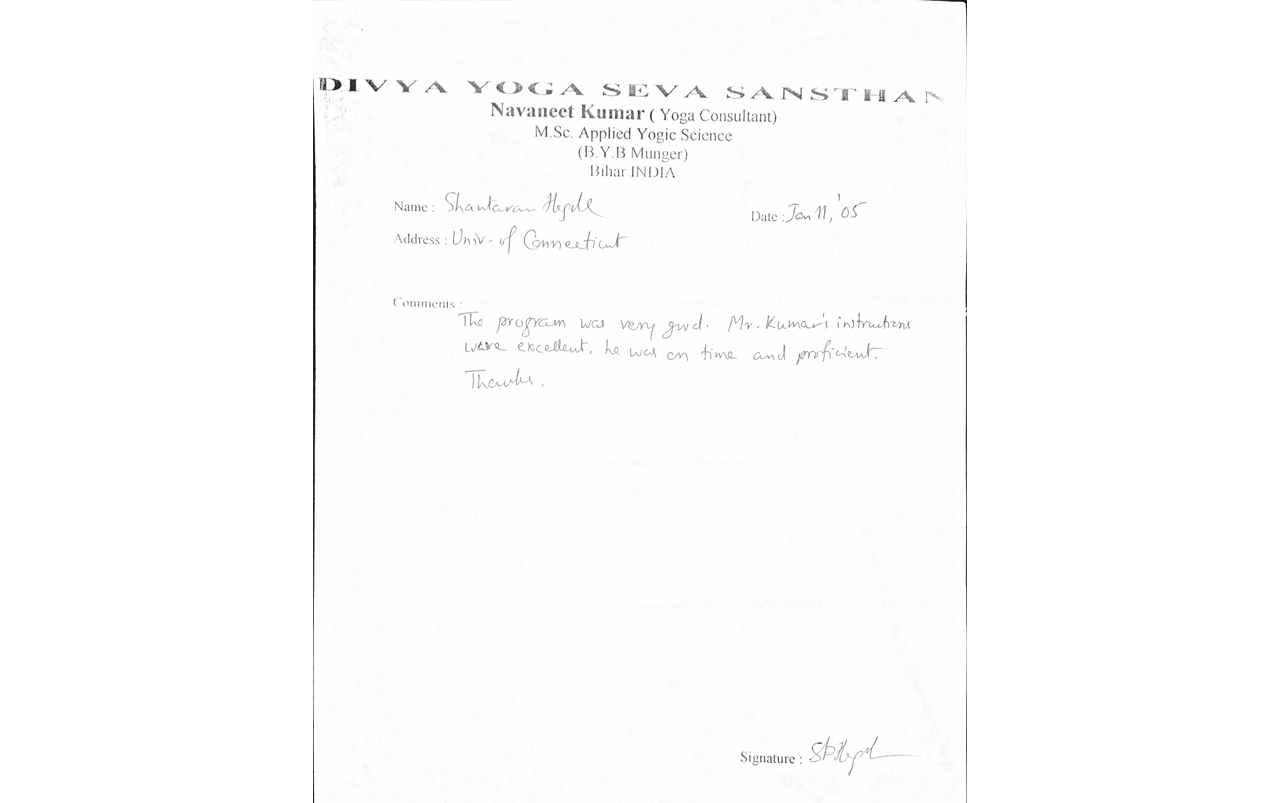 DIVYA YOGA SEVA SANSTHAN
Navaneet Kumar ( Yoga Consultant)
M.Sc. Applied Yogic Science
(B.Y.B Munger)
Bihar INDIA
Name : Shantaram Hegde
Date : Jan 11, '05
Address : Univ. of Connecticut
Comments :
The program was very good. Mr. Kumar's instructions
were excellent, he was on time and proficient.
Thanks.
Signature :